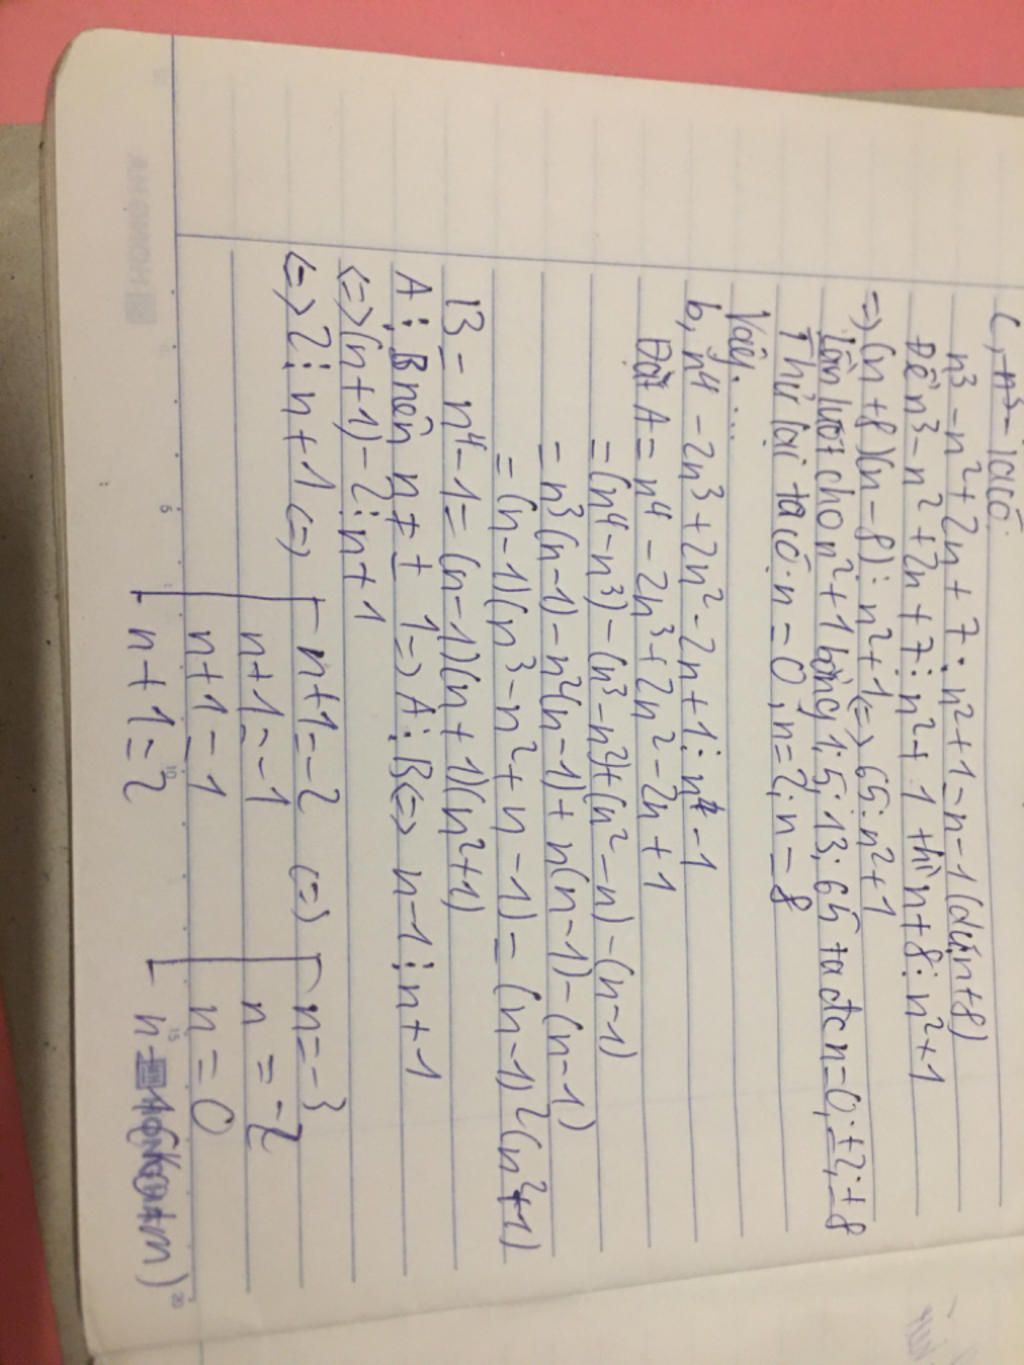 c, n³ - Ta có:
n³ - n² + 2n + 7 : n² + 1 = n - 1 (dư n + 8)
Để n³ - n² + 2n + 7 ⋮ n² + 1 thì n + 8 ⋮ n² + 1
=> (n + 8)(n - 8) ⋮ n² + 1 <=> 65 ⋮ n² + 1
Lần lượt cho n² + 1 bằng 1; 5; 13; 65 ta đc n = 0; ±2; ±8
Thử lại ta có n = 0; n = 2; n = -8
Vậy....
b, n⁴ - 2n³ + 2n² - 2n + 1 ⋮ n⁴ - 1
Đặt A = n⁴ - 2n³ + 2n² - 2n + 1
= (n⁴ - n³) - (n³ - n²) + (n² - n) - (n - 1)
= n³(n - 1) - n²(n - 1) + n(n - 1) - (n - 1)
= (n - 1)(n³ - n² + n - 1) = (n - 1)²(n² + 1)
B = n⁴ - 1 = (n - 1)(n + 1)(n² + 1)
A ⋮ B nên n ≠ ± 1 => A ⋮ B <=> n - 1 ⋮ n + 1
<=> (n + 1) - 2 ⋮ n + 1
<=> 2 ⋮ n + 1 <=> n + 1 = -2 <=> n = -3
n + 1 = -1 n = -2
n + 1 = 1 n = 0
n + 1 = 2 n = 1 (Ko t/m)
5
10
15
20